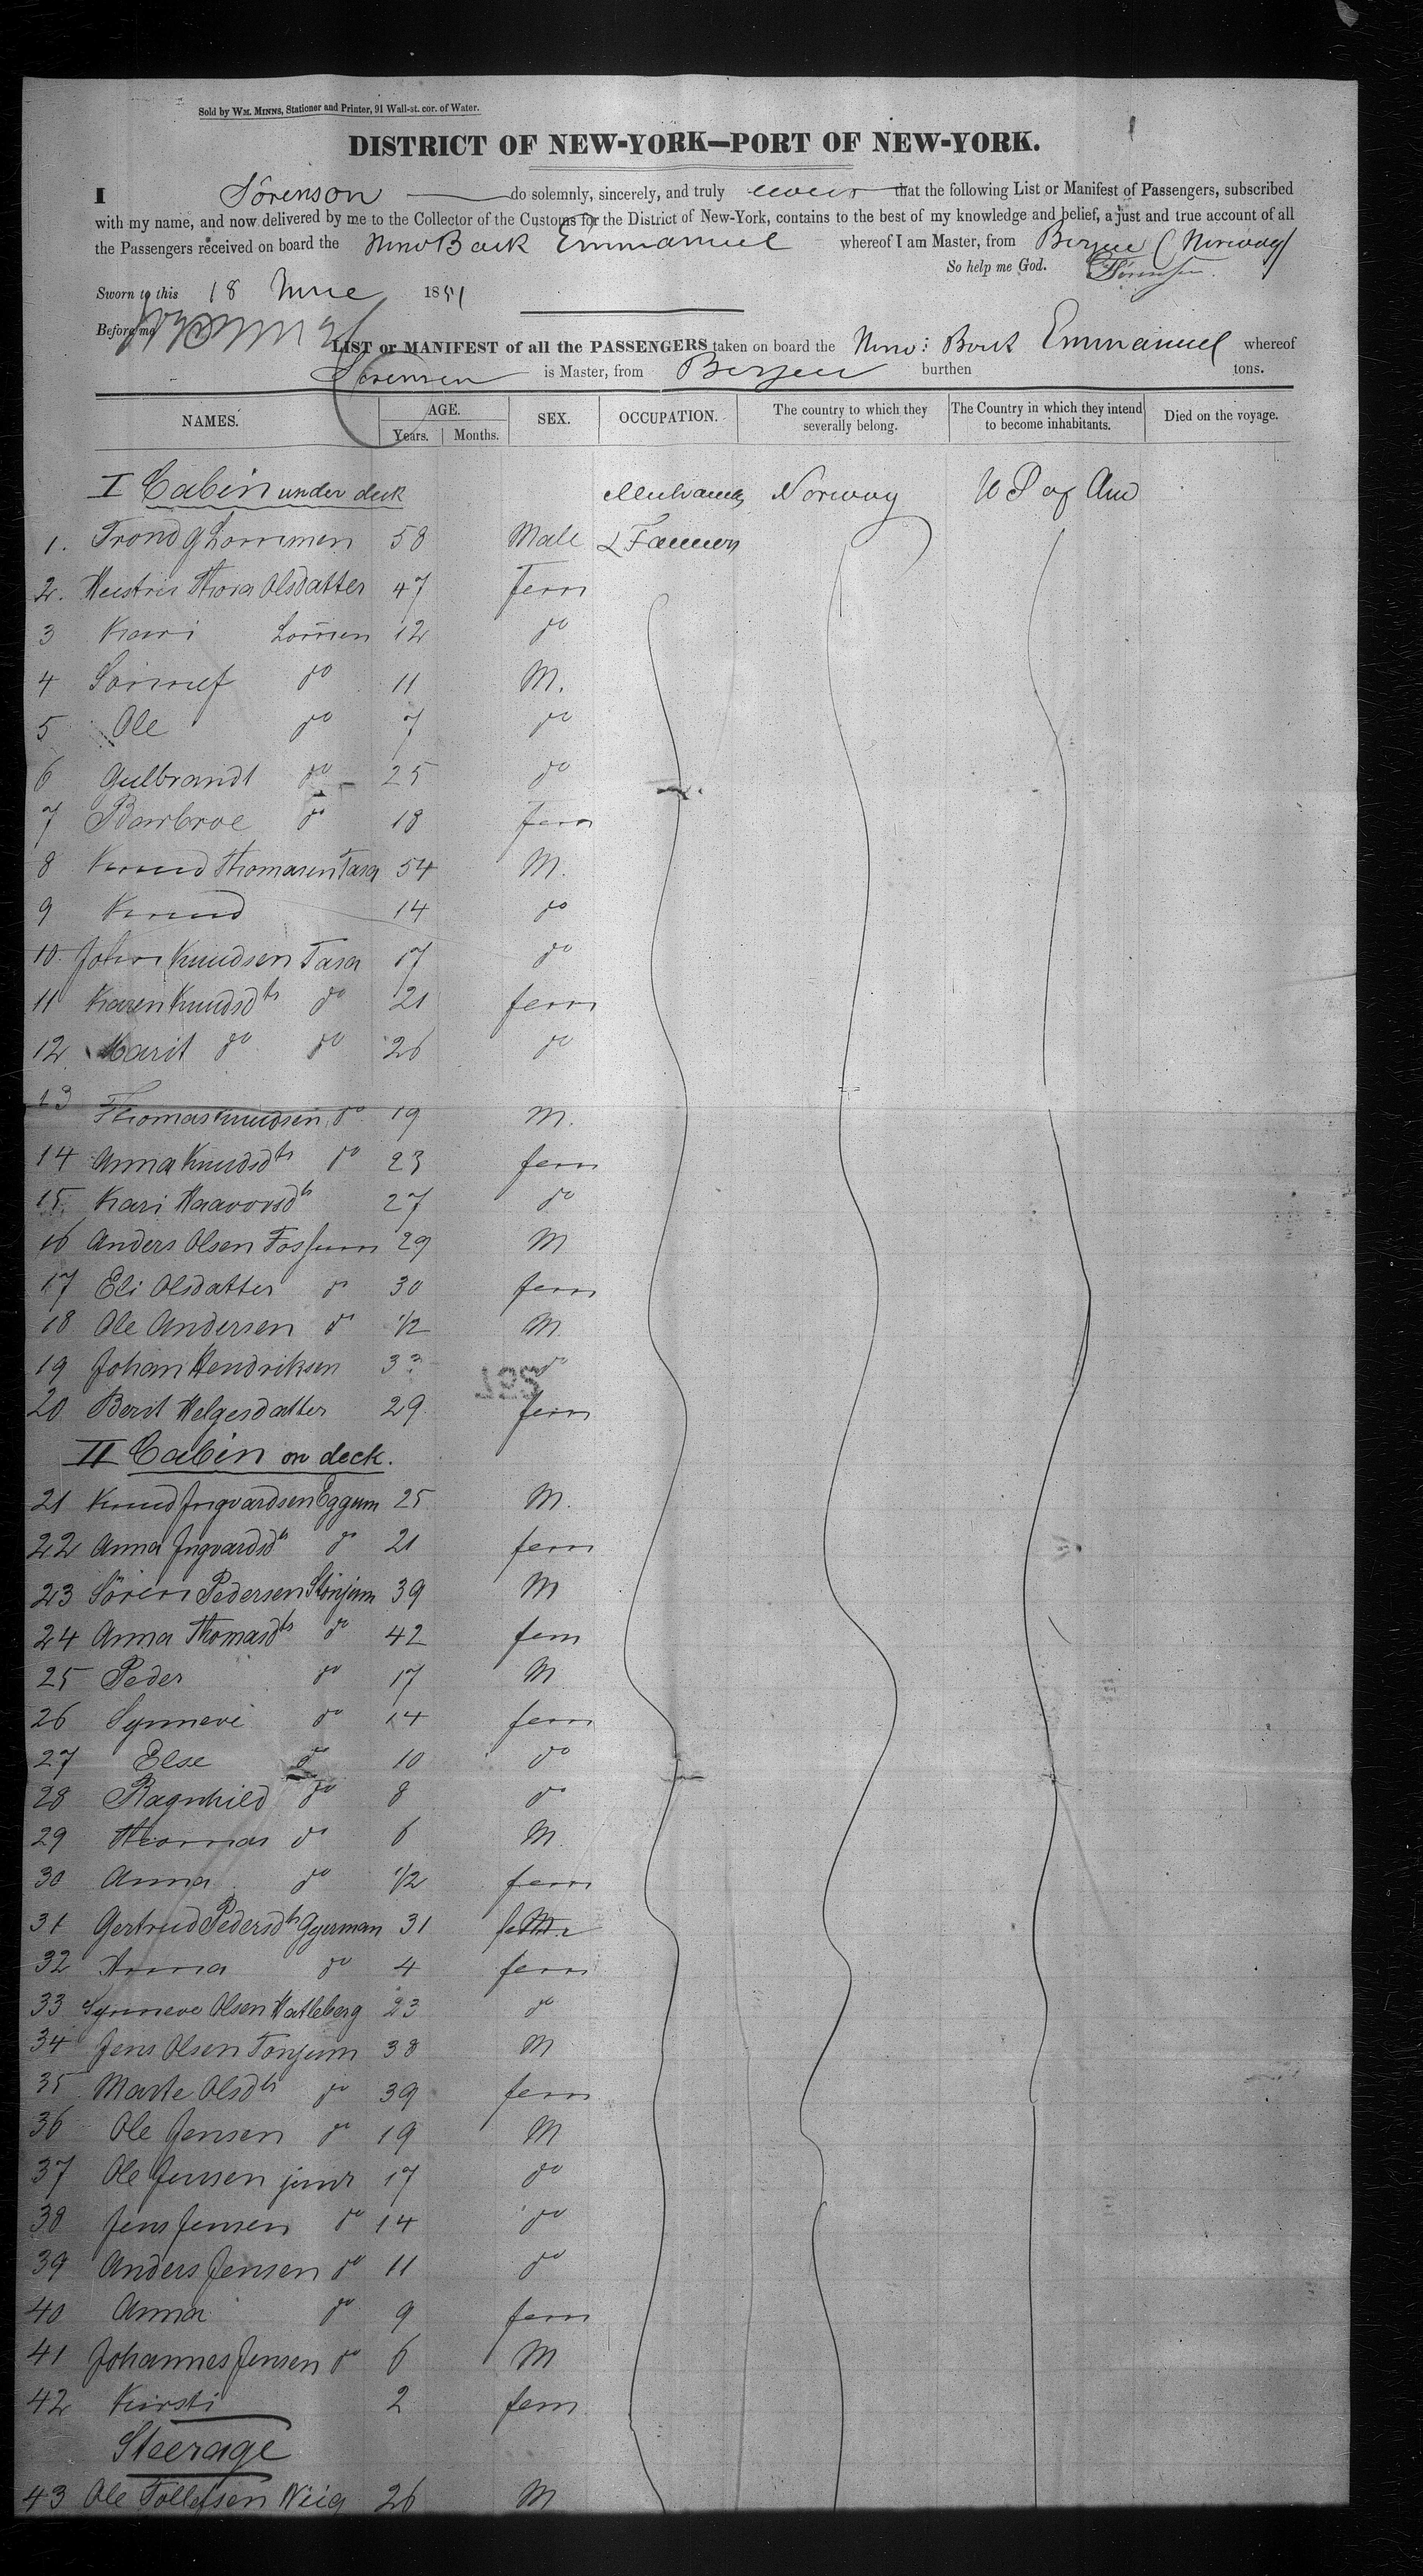 Sold by WM. MINNS, Stationer and Printer, 91 Wall-st. cor. of Water.
DISTRICT OF NEW-YORK—PORT OF NEW-YORK.
I Sörenson do solemnly, sincerely, and truly swear that the following List or Manifest of Passengers, subscribed
with my name, and now delivered by me to the Collector of the Customs for the District of New-York, contains to the best of my knowledge and belief, a just and true account of all
the Passengers received on board the Bark Emmanuel whereof I am Master, from Bergen (Norway)
So help me God.
Sworn to this 18 June 1851
Before me
LIST or MANIFEST of all the PASSENGERS taken on board the Bark Emmanuel whereof
Sorensen is Master, from Bergen burthen tons.
NAMES. AGE. SEX. OCCUPATION. The country to which they severally belong. The Country in which they intend to become inhabitants. Died on the voyage.
Years. Months.
I Cabin under deck Norway of Am
1. Trond G Lommen 58 Male & Farmers
2. Thora Olsdatter 47 fem
3 Kari Lom̃en 12 do
4 do 11 M.
5 Ole do 7 do
6 Gulbrandt do 25 do
7 Barbroe do 18 fem
8 Knud Thomasen Tasa 54 M.
9 Knud 14 do
10 John Knudsen Tasa 17 do
11 Karen Knudsdtr do 21 fem
12 Marit do do 26 do
13 Thomas Knudsen do 19 M.
14 Anna Knudsdtr do 23 fem
15 Kari Haavorsdtr 27 do
16 Anders Olsen Fossum 29 M
17 Eli Olsdatter do 30 fem
18 Ole Andersen do 1/2 M
19 Johan Hendriksen 33 do
20 Berit Helgesdatter 29 fem
II Cabin on deck.
21 Knud Ingvardsen Eggum 25 M.
22 Anna Ingvardsdtr do 21 fem
23 Sören Pedersen Stönjum 39 M
24 Anna Thomasdtr do 42 fem
25 Peder do 17 M
26 Synneve do 14 fem
27 Else do 10 do
28 Ragnhild do 8 do
29 Thomas do 6 M
30 Anna do 1/2 fem
31 Gertrud Pedersdtr Gjerman 31
32 Anna do 4 fem
33 Synneve Olsen Hatleberg 23 do
34 Jens Olsen Tonjum 38 M
35 Marte Olsdtr do 39 fem
36 Ole Jensen do 19 M
37 Ole Jensen junr 17 do
38 Jens Jensen do 14 do
39 Anders Jensen do 11 do
40 Anna do 9 fem
41 Johannes Jensen do 6 M
42 Kirsti 2 fem
Steerage
43 Ole Tollefsen 26 M